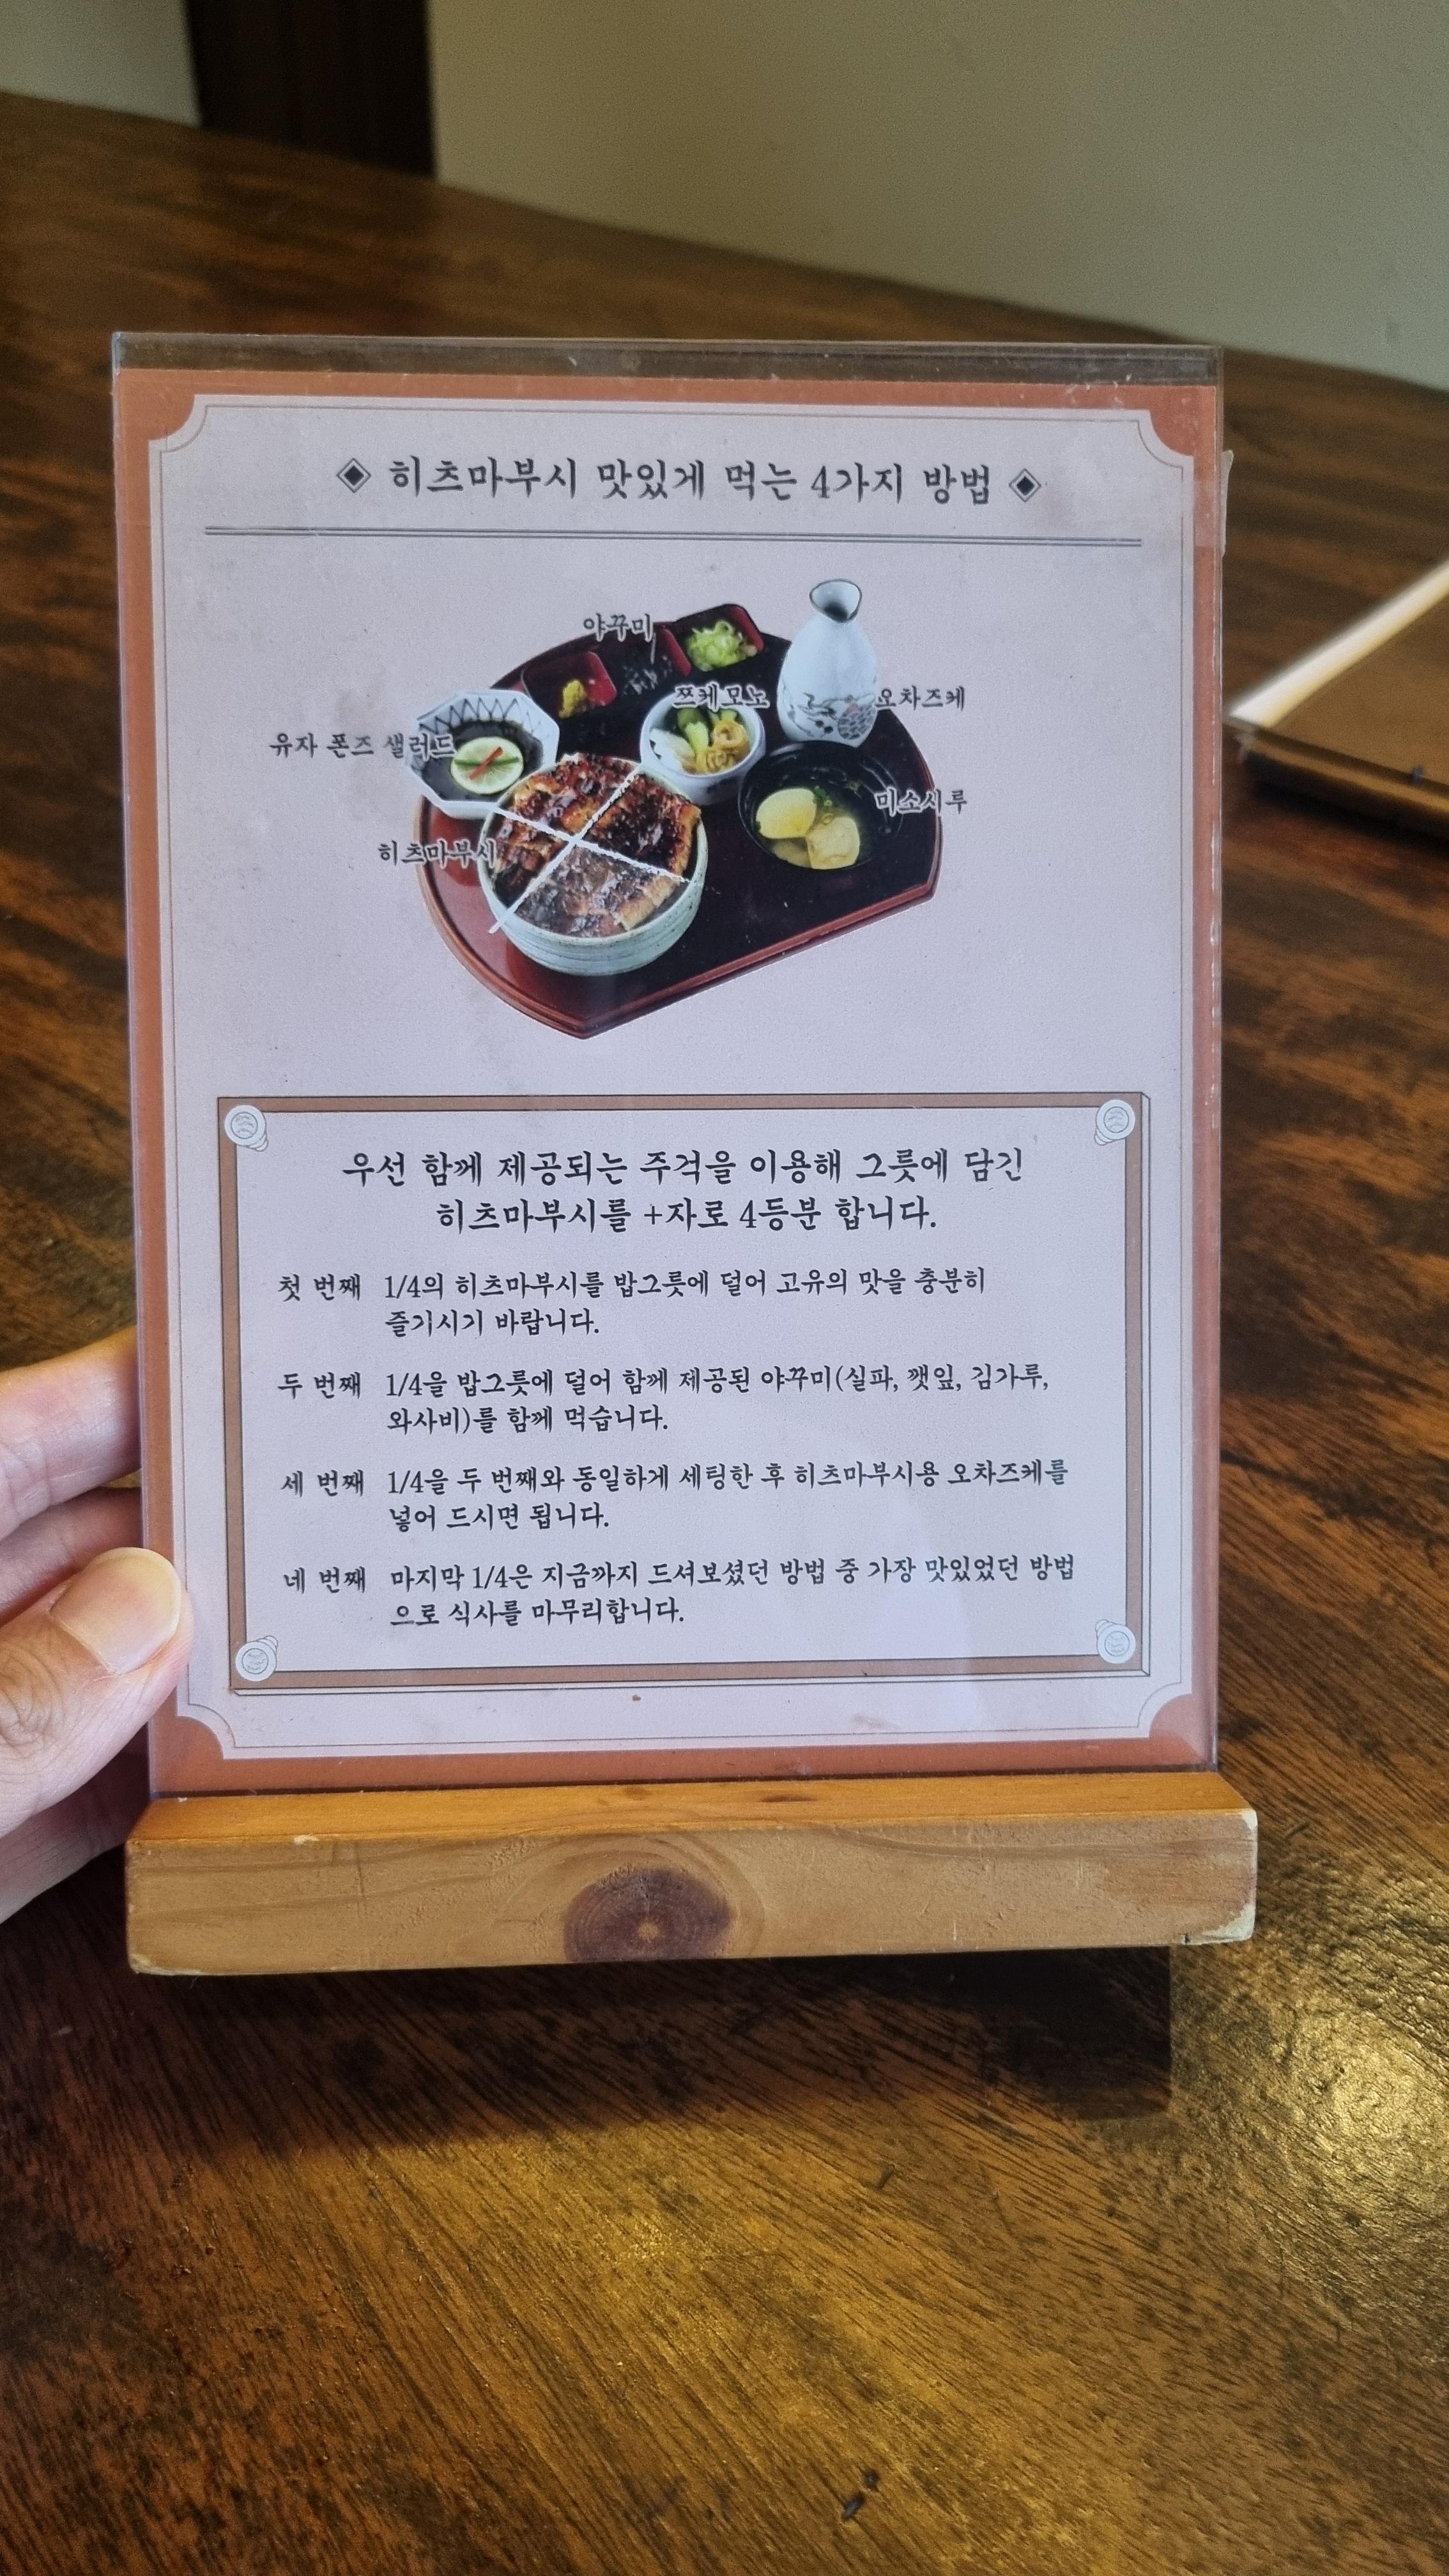 히츠마부시 맛있게 먹는 4가지 방법
야꾸미
쯔케모노
오차즈케
유자 폰즈 샐러드
미소시루
히츠마부시
우선 함께 제공되는 주걱을 이용해 그릇에 담긴
히츠마부시를 +자로 4등분 합니다.
첫 번째 1/4의 히츠마부시를 밥그릇에 덜어 고유의 맛을 충분히
즐기시기 바랍니다.
두 번째 1/4을 밥그릇에 덜어 함께 제공된 야꾸미(실파, 깻잎, 김가루,
와사비)를 함께 먹습니다.
세 번째 1/4을 두 번째와 동일하게 세팅한 후 히츠마부시용 오차즈케를
넣어 드시면 됩니다.
네 번째 마지막 1/4은 지금까지 드셔보셨던 방법 중 가장 맛있었던 방법
으로 식사를 마무리합니다.